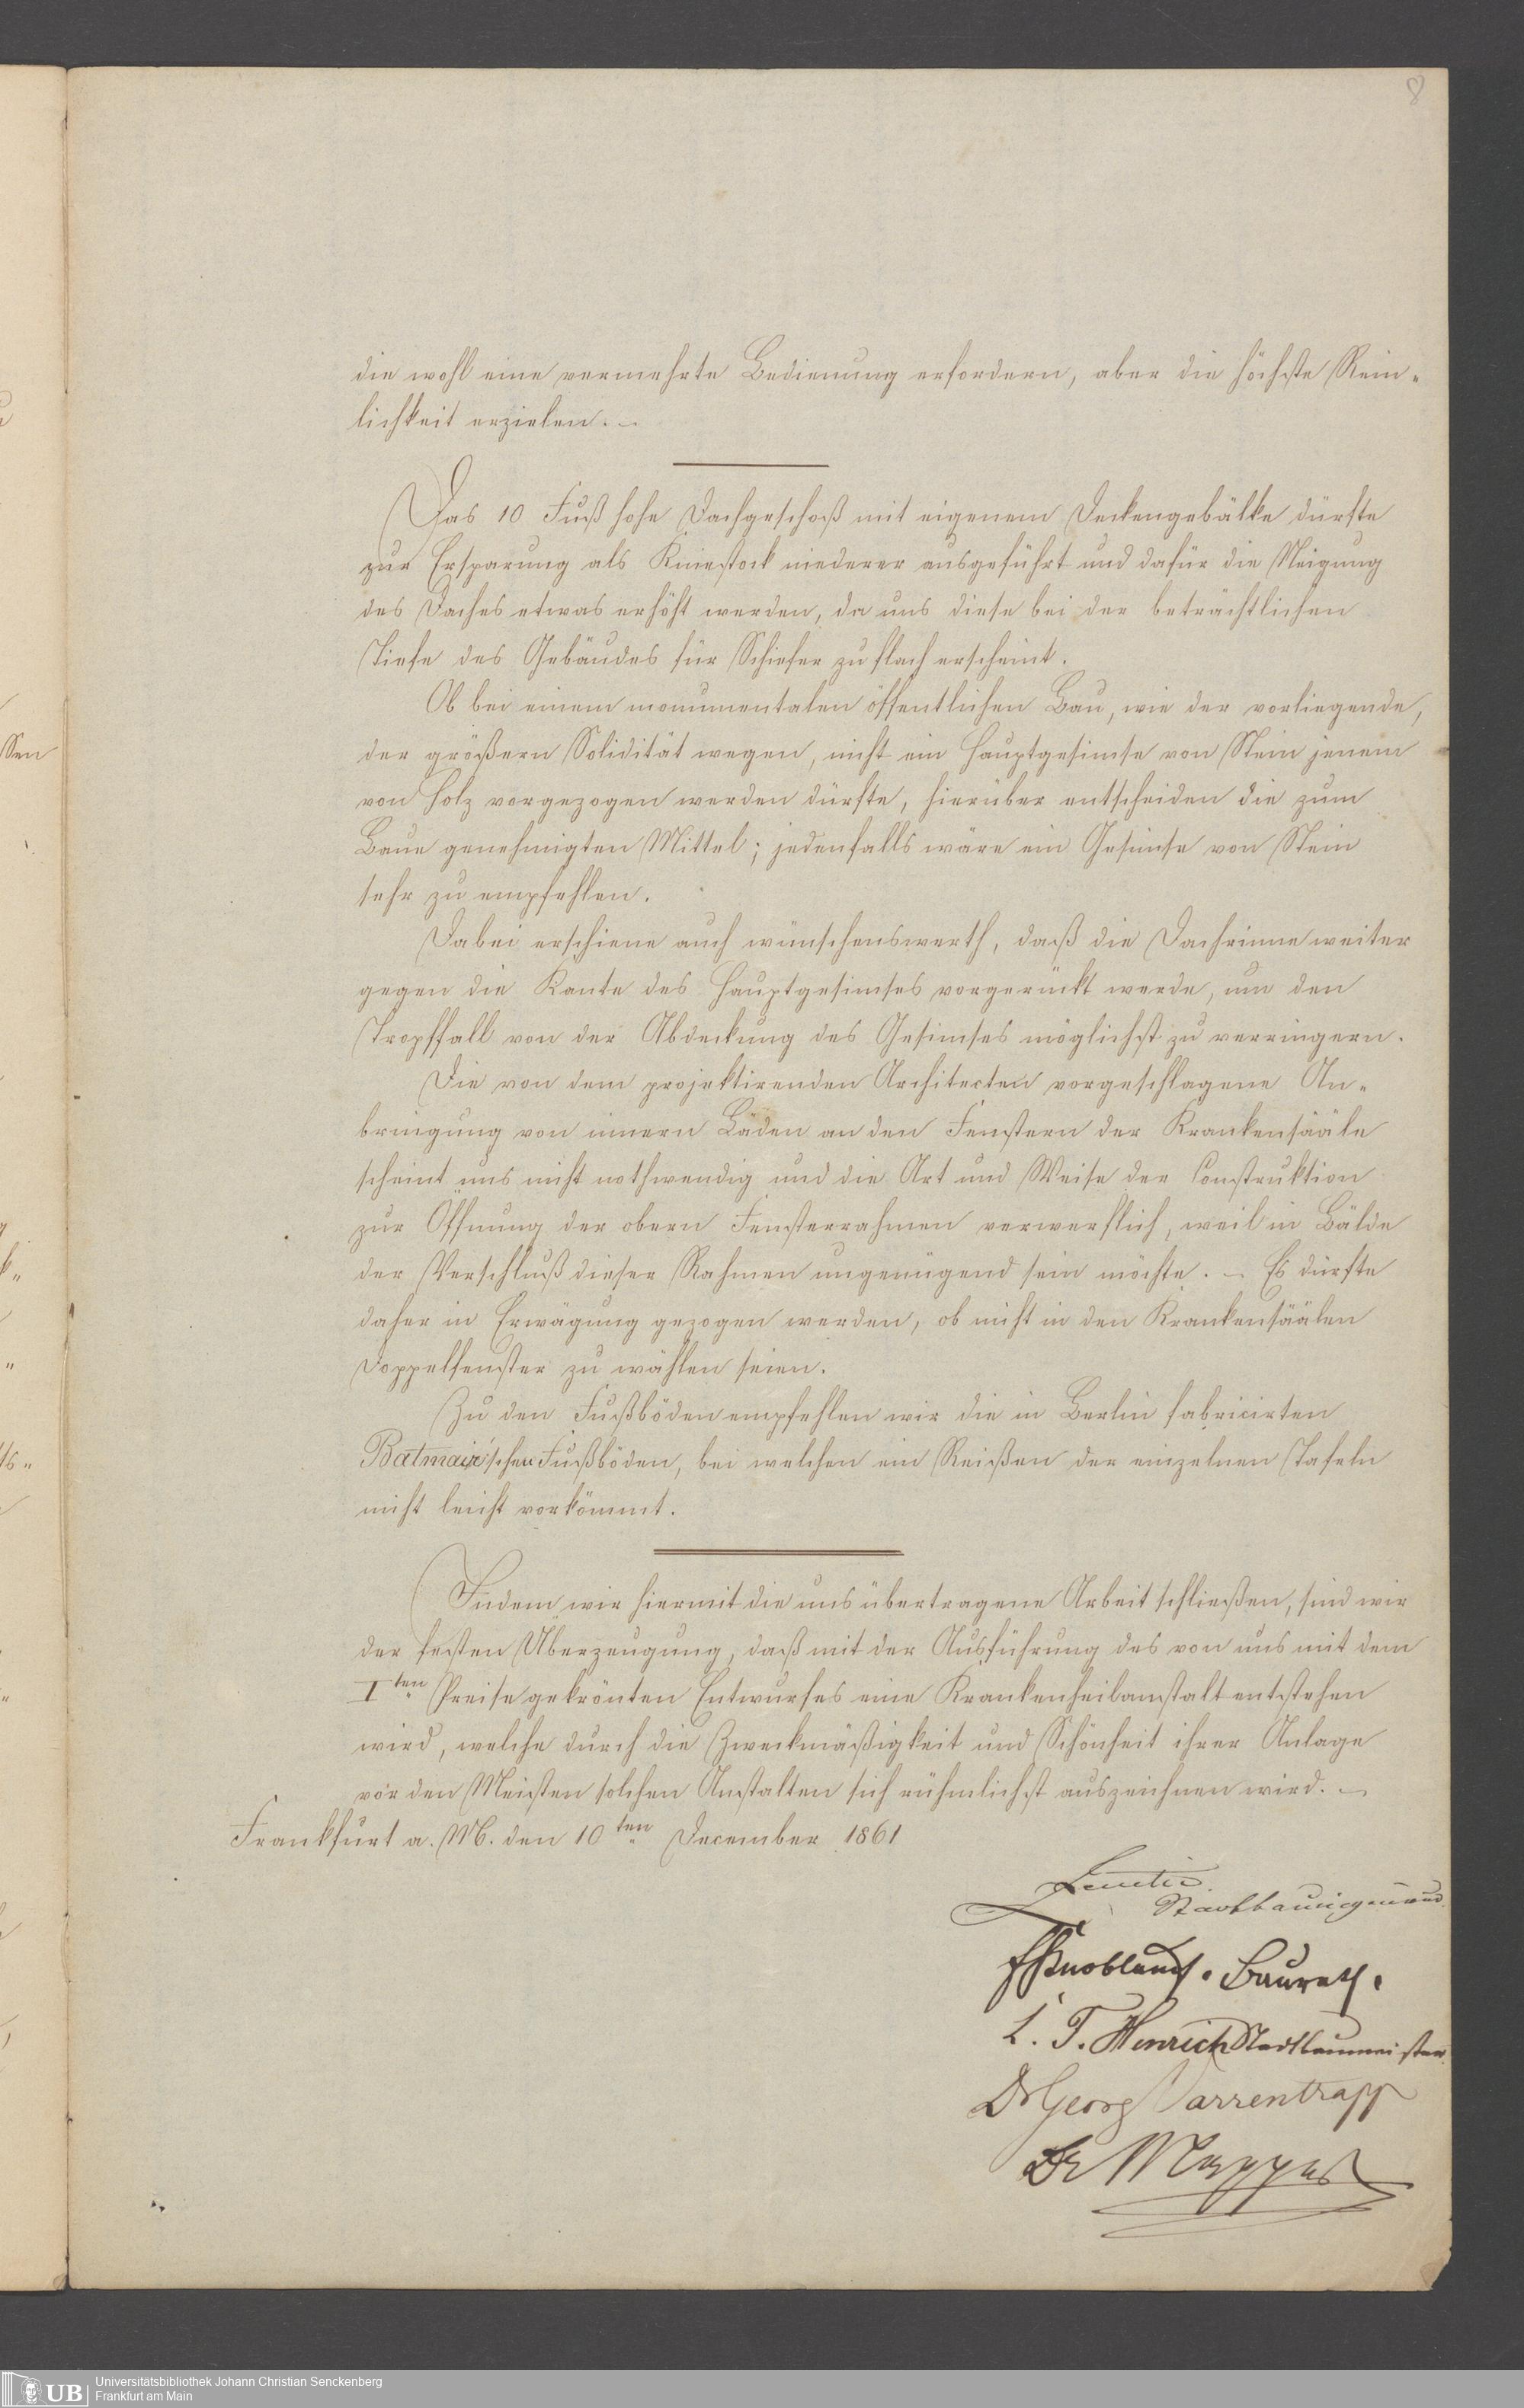 8
die wohl eine vermehrte Bedienung erfordern, aber die höchste Rein-
lichkeit erzielen. –
Das 10 Fuß hohe Dachgeschoß mit eigenem Deckengebälke dürfte
zur Ersparung als Kniestock niederer ausgeführt und dafür die Neigung
des Daches etwas erhöht werden, da uns diese bei der beträchtlichen
Tiefe des Gebäudes für Schiefer zu flach erscheint.
Ob bei einem monumentalen öffentlichen Bau, wie der vorliegende,
der größern Solidität wegen, nicht ein Hauptgesimse von Stein jenem
von Holz vorgezogen werden dürfte, hierüber entscheiden die zum
Baue genehmigten Mittel; jedenfalls wäre ein Gesimse von Stein
sehr zu empfehlen.
Dabei erschiene auch wünschenswerth, daß die Dachrinne weiter
gegen die Kante des Hauptgesimses vorgerückt werde, um den
Tropffall von der Abdeckung des Gesimses möglichst zu verringern.
Die von dem projektirenden Architecten vorgeschlagene An-
bringung von innern Läden an den Fenstern der Krankensääle
scheint uns nicht nothwendig und die Art und Weise der Construktion
zur Öffnung der obern Fensterrahmen verwerflich, weil in Bälde
der Verschluß dieser Rahmen ungenügend sein möchte. – Es dürfte
daher in Erwägung gezogen werden, ob nicht in den Krankensäälen
Doppelfenster zu wählen seien.
Zu den Fußböden empfehlen wir die in Berlin fabricirten
Batmair'schen Fußböden, bei welchen ein Reißen der einzelnen Tafeln
nicht leicht vorkömmt.
Indem wir hiermit die uns übertragene Arbeit schließen, sind wir
der festen Überzeugung, daß mit der Ausführung des von uns mit dem
Iten Preise gekrönten Entwurfes eine Krankenheilanstalt entstehen
wird, welche durch die Zweckmäßigkeit und Schönheit ihrer Anlage
vor den Meisten solchen Anstalten sich rühmlichst auszeichnen wird. –
Frankfurt a. M. den 10ten December 1861
Knoblauch. Baurath.
L. T. Henrich Stadtbaumeister.
Dr Georg Varrentrapp
Dr Mappes
UB
Universitätsbibliothek Johann Christian Senckenberg
Frankfurt am Main